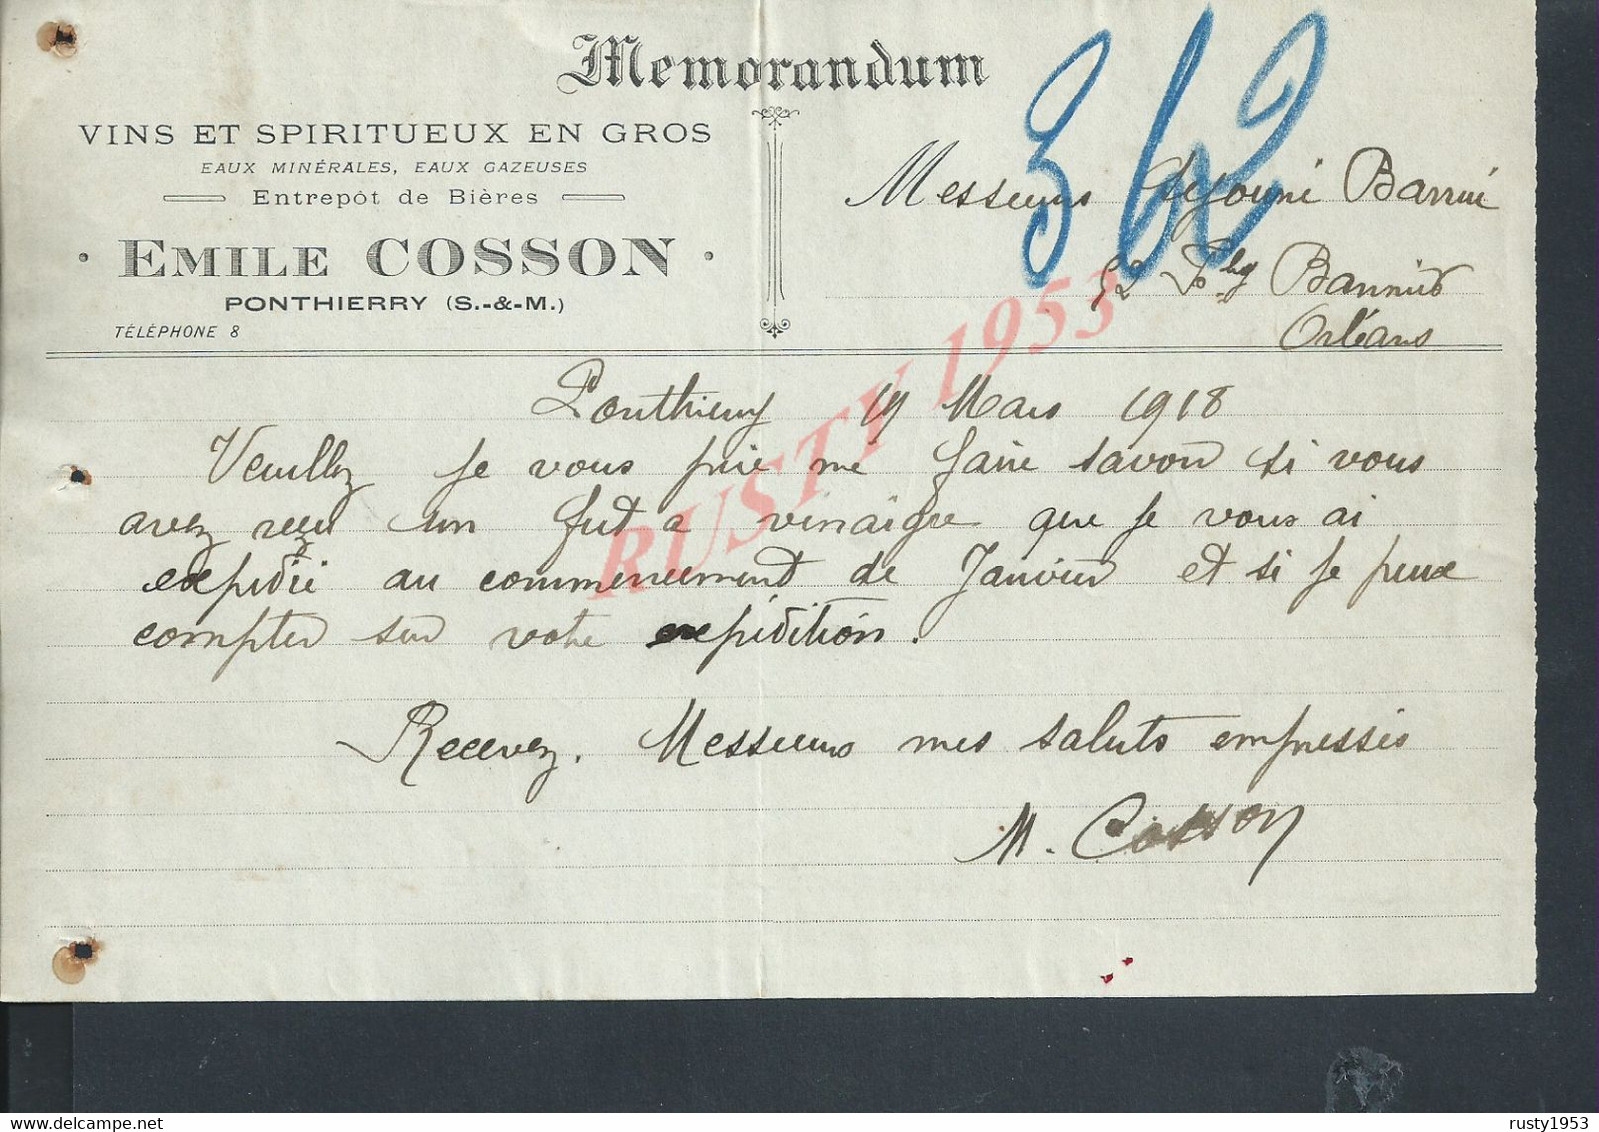 Memorandum
VINS ET SPIRITUEUX EN GROS
EAUX MINÉRALES, EAUX GAZEUSES
Entrepôt de Bières
EMILE COSSON
PONTHIERRY (S.-&-M.)
TÉLÉPHONE 8
362
Messieurs
52 Fbg Bannier
Orléans
Ponthierry 19 Mars 1918
Veuillez je vous prie me faire savoir si vous
avez reçu un fut a vinaigre que je vous ai
expidié au commencement de Janvier et si je peux
compter sur votre expidition.
Recevez. Messieurs mes saluts empressés
M. Cosson
RUSTY 1953
delcampe.net
rusty1953